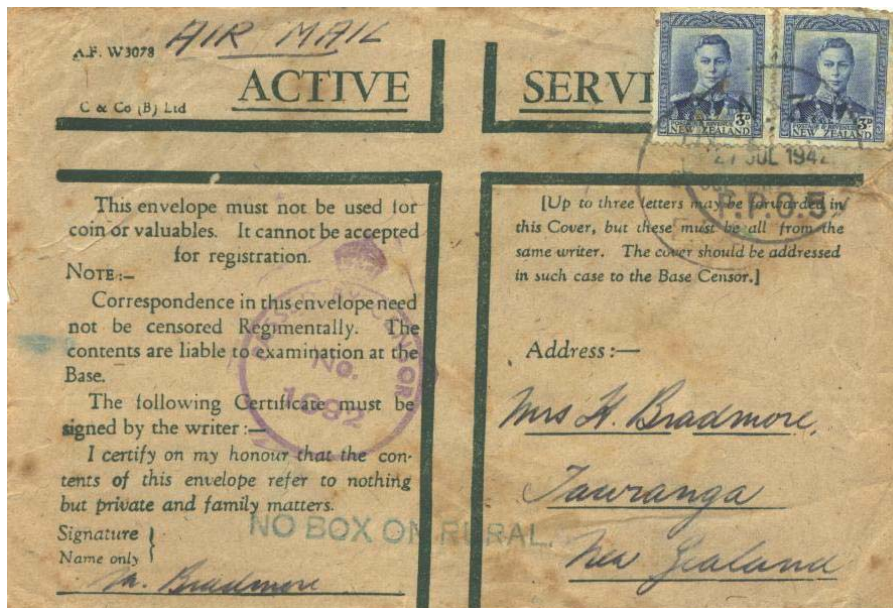 A.F. W3078 AIR MAIL
C & Co (B) Ltd
ACTIVE SERVI
3D
NEW ZEALAND
3D
NEW ZEALAND
27 JUL 1942
This envelope must not be used for
coin or valuables. It cannot be accepted
for registration.
NOTE:—
Correspondence in this envelope need
not be censored Regimentally. The
contents are liable to examination at the
Base.
The following Certificate must be
signed by the writer:—
I certify on my honour that the con-
tents of this envelope refer to nothing
but private and family matters.
Signature
Name only
Bradmore
PASSED BY CENSOR
No.
1692
NO BOX ON RURAL.
[Up to three letters may be forwarded in
this Cover, but these must be all from the
same writer. The cover should be addressed
in such case to the Base Censor.]
Address:—
Mrs H. Bradmore,
Tauranga
New Zealand